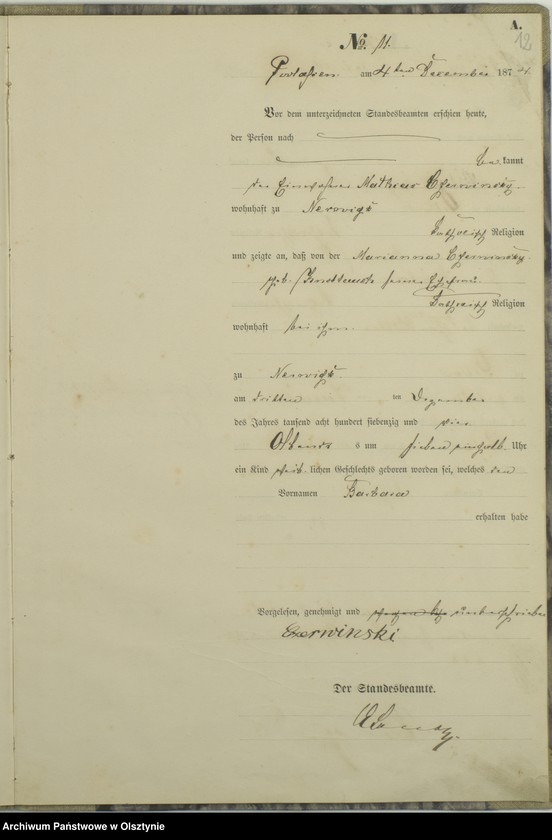 A.
12
No. 11.
am 4ten December 1874.
Vor dem unterzeichneten Standesbeamten erschien heute,
der Person nach
bekannt
der Einwohner Mathias Czerwinsky
wohnhaft zu
katholisch Religion
und zeigte an, daß von der Marianna Czerwinsky
geb. seiner Ehefrau
katholisch Religion
wohnhaft bei ihm
zu
am dritten ten Dezember
des Jahres tausend acht hundert siebenzig und vier
Abends s um sieben einhalb Uhr
ein Kind weib lichen Geschlechts geboren worden sei, welches den
Vornamen Barbara
erhalten habe
Vorgelesen, genehmigt und unterschrieben
Czerwinski
Der Standesbeamte.
Archiwum Państwowe w Olsztynie